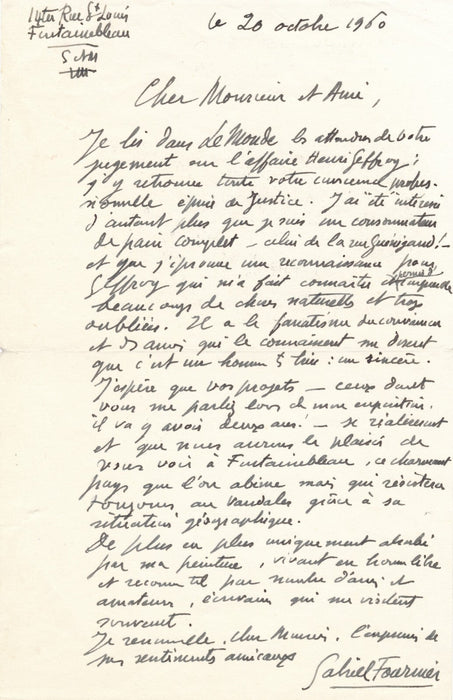 14ter Rue St Louis
Fontainebleau
S & M
le 20 octobre 1960
Cher Monsieur et Ami,
Je lis dans Le Monde les attendus de votre
jugement sur l'affaire Henri Geffroy;
j'y retrouve toute votre conscience profes-
sionnelle éprise de Justice. J'ai été intéressé
d'autant plus que je suis un consommateur
de pain complet – celui de la rue Guénégaud! –
et que j'éprouve une reconnaissance pour
Geffroy qui m'a fait connaître et permis d'
comprendre
beaucoup de choses naturelles et trop
oubliées. Il a le fanatisme du convaincu
et des amis qui le connaissent me disent
que c'est un homme très bien : un sincère.
J'espère que vos projets – ceux dont
vous me parliez lors de mon exposition,
il va y avoir deux ans – se réaliseront
et que nous aurons le plaisir de
vous voir à Fontainebleau, ce charmant
pays que l'on abîme mais qui résistera
toujours aux Vandales grâce à sa
situation géographique.
De plus en plus uniquement absorbé
par ma peinture, vivant en homme libre
et reconnu tel par nombre d'amis et
amateurs, écrivains qui me visitent
souvent.
Je renouvelle, cher Monsieur, l'expression de
mes sentiments amicaux
Gabriel Fournier